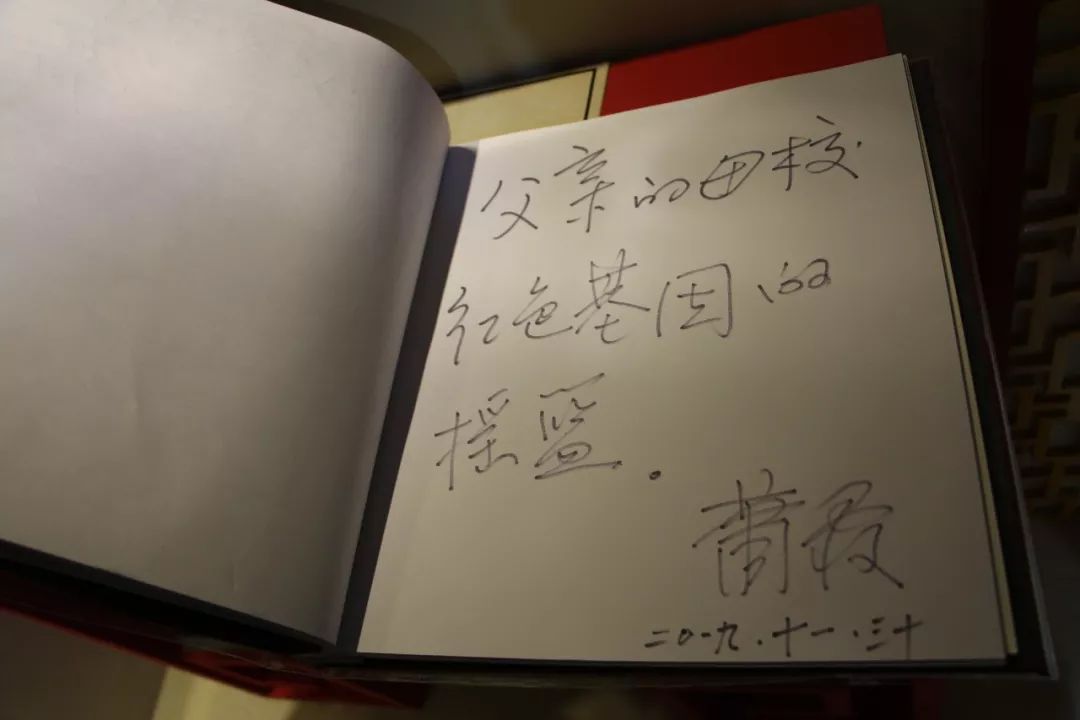 父亲的母校
红色基因的
摇篮。
二〇一九.十一.三十